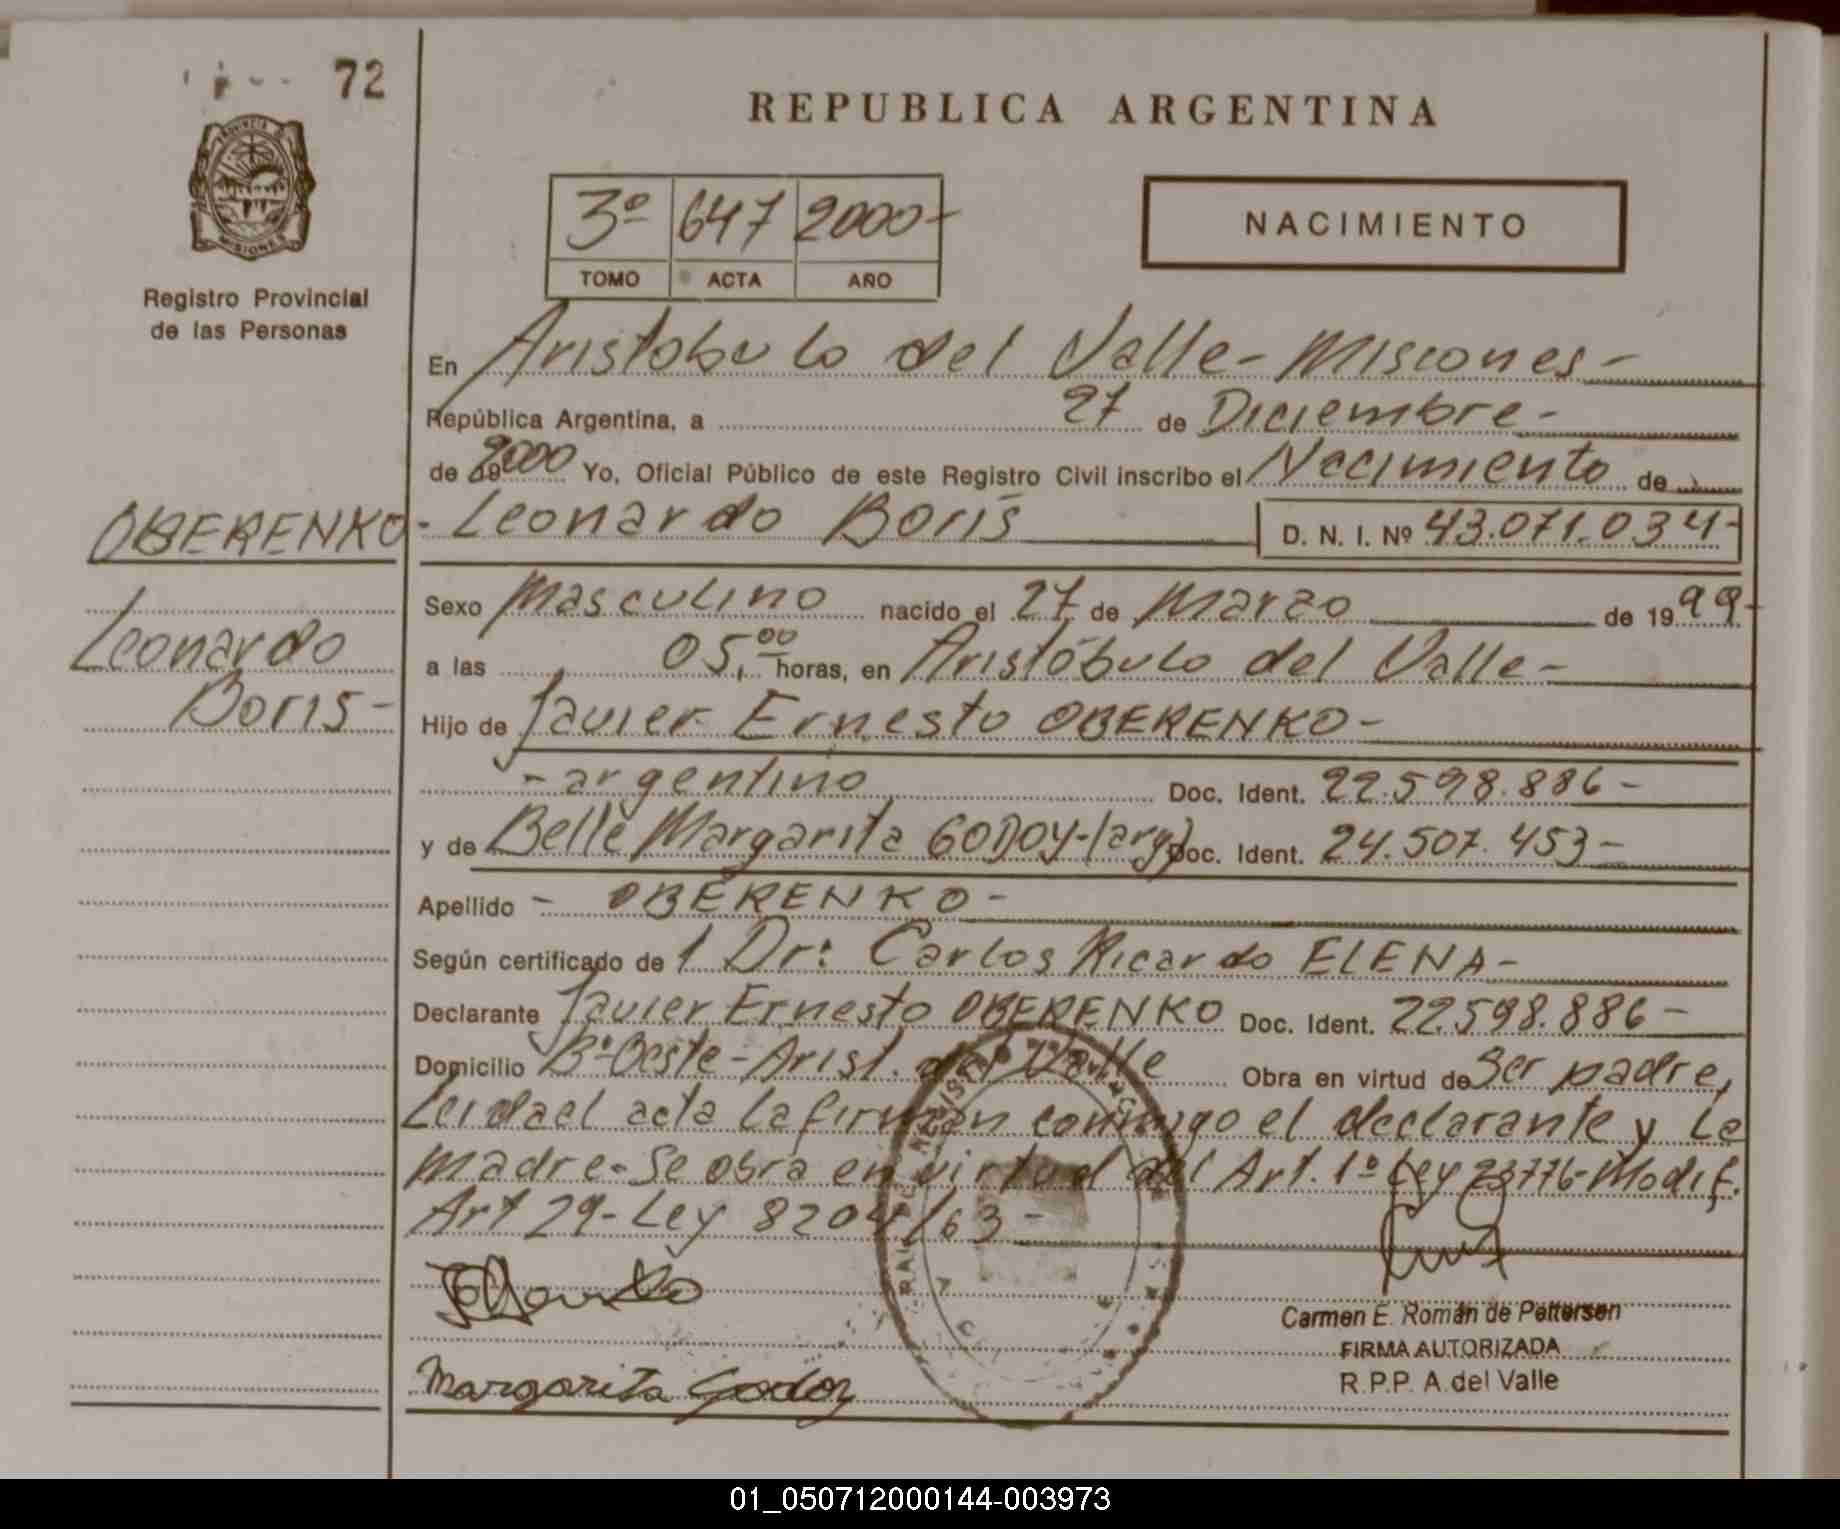 72
REPUBLICA ARGENTINA
PROVINCIA DE
MISIONES
Registro Provincial
de las Personas
3º 647 2000-
TOMO ACTA AÑO
NACIMIENTO
En Aristobulo del Valle - Misiones -
República Argentina, a 27 de Diciembre -
de 2000 Yo, Oficial Público de este Registro Civil inscribo el Nacimiento de
OBERENKO - Leonardo Boris D. N. I. Nº 43.071.034-
Leonardo
Boris -
Sexo Masculino nacido el 27 de Marzo de 1999-
a las 05,00 horas, en Aristóbulo del Valle -
Hijo de Javier Ernesto OBERENKO -
- argentino Doc. Ident. 22.598.886 -
y de Belle Margarita GODOY - (arg) Doc. Ident. 24.507.453 -
Apellido - OBERENKO -
Según certificado de l Dr: Carlos Ricardo ELENA -
Declarante Javier Ernesto OBERENKO Doc. Ident. 22.598.886 -
Domicilio Bº Oeste - Arist. del Valle Obra en virtud de Ser padre,
Leida el acta la firman conmigo el declarante y la
madre - Se obra en virtud del Art. 1º Ley 23776 - Modif.
Art 29 - Ley 8204/63 -
Margarita Godoy
Carmen E. Román de Pettersen
FIRMA AUTORIZADA
R.P.P. A.del Valle
01_050712000144-003973